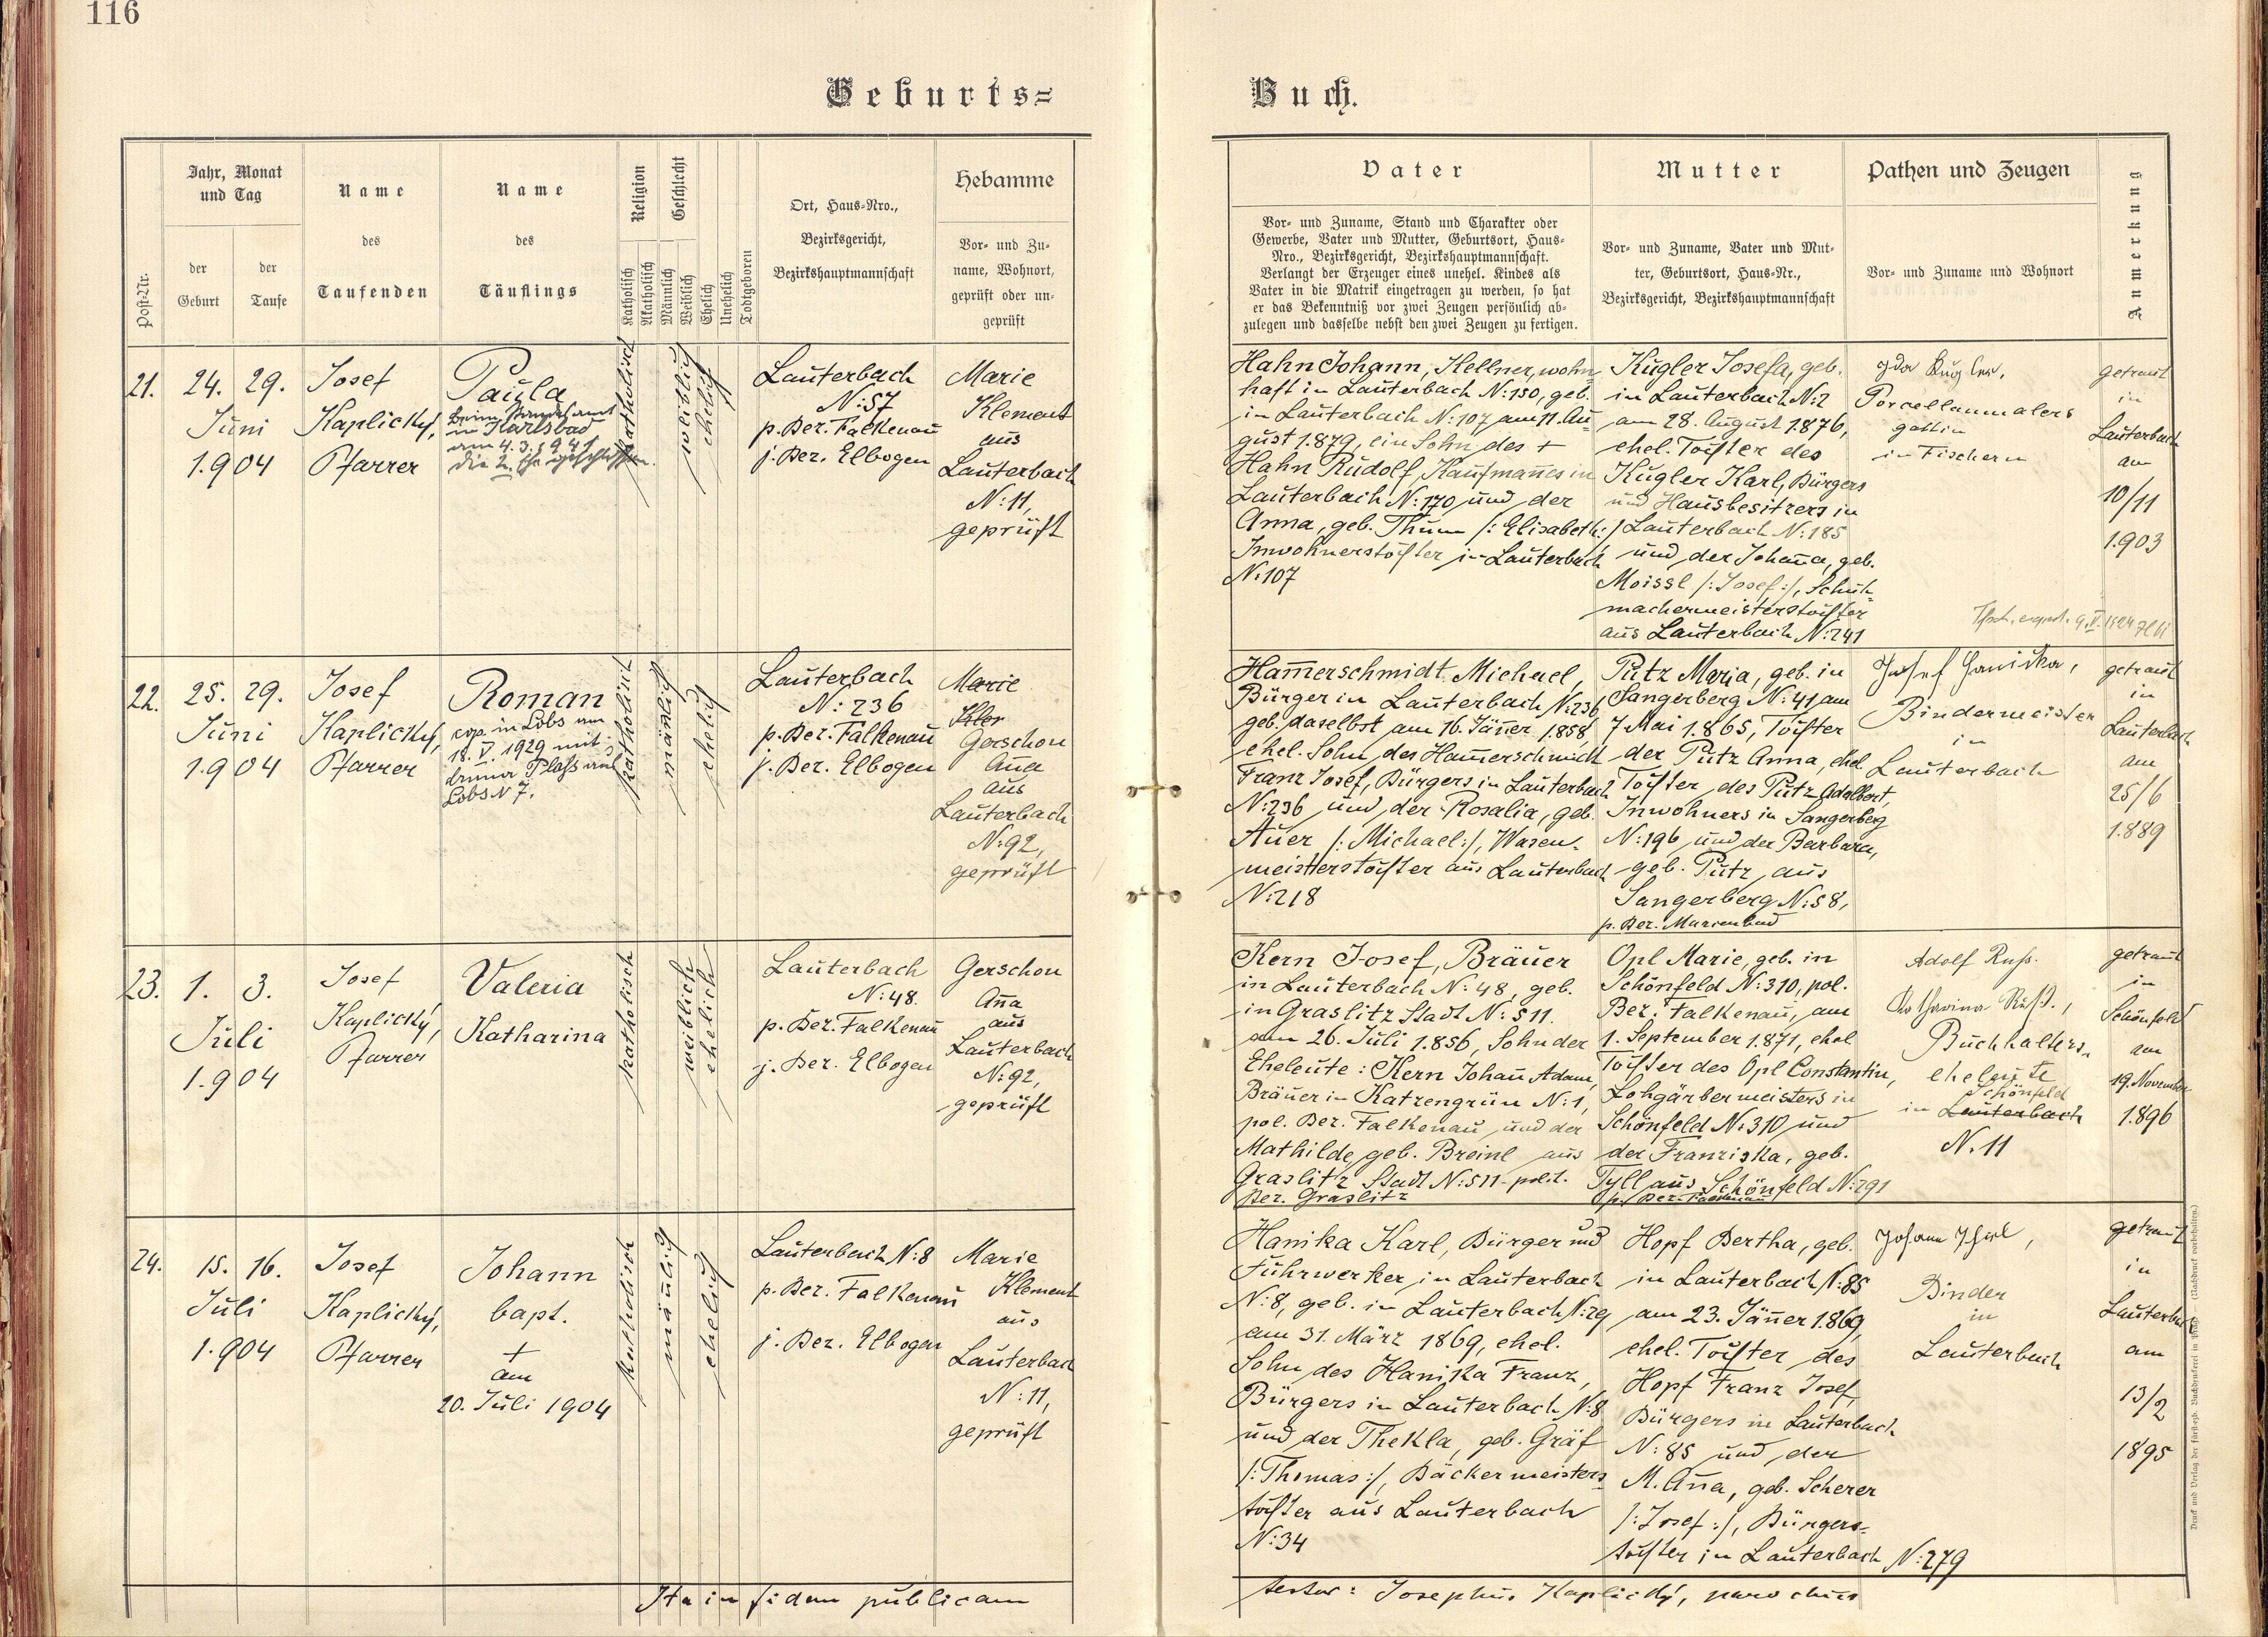 116
Geburts=
Buch.
Post-Nr.
Jahr, Monat
und Tag
der
Geburt
der
Taufe
Name
des
Taufenden
Name
des
Täuflings
Religion
Katholisch
Akatholisch
Geschlecht
Männlich
Weiblich
Ehelich
Unehelich
Todtgeboren
Ort, Haus-Nro.,
Bezirksgericht,
Bezirkshauptmannschaft
Hebamme
Vor- und Zu-
name, Wohnort,
geprüft oder un-
geprüft
Vater
Vor- und Zuname, Stand und Charakter oder
Gewerbe, Vater und Mutter, Geburtsort, Haus-
Nro., Bezirksgericht, Bezirkshauptmannschaft.
Verlangt der Erzeuger eines unehel. Kindes als
Vater in die Matrik eingetragen zu werden, so hat
er das Bekenntniß vor zwei Zeugen persönlich ab-
zulegen und dasselbe nebst den zwei Zeugen zu fertigen.
Mutter
Vor- und Zuname, Vater und Mut-
ter, Geburtsort, Haus-Nr.,
Bezirksgericht, Bezirkshauptmannschaft
Pathen und Zeugen
Vor- und Zuname und Wohnort
Anmerkung
21.
24. 29.
Juni
1.904
Josef
Kaplický,
Pfarrer
Paula
Beim Standesamt
in Karlsbad
am 4.3.1941
die 2. Ehe geschlossen.
katholisch
weiblich
ehelich
Lauterbach
N:57
p. Bez. Falkenau
j. Bez. Elbogen
Marie
Klement
aus
Lauterbach
N:11,
geprüft
Hahn Johann, Kellner, wohn-
haft in Lauterbach N:150, geb.
in Lauterbach N:107 am 11. Au-
gust 1.879, ein Sohn des +
Hahn Rudolf, Kaufmanes in
Lauterbach N:170 und der
Anna, geb. Thum /:Elisabeth:/
Inwohnerstochter in Lauterbach
N:107
Kugler Josefa, geb.
in Lauterbach N:2
am 28. August 1.876,
ehel. Tochter des
Kugler Karl, Bürgers
und Hausbesitzers in
Lauterbach N:185
und der Johana, geb.
Moissl /:Josef:/, Schuh-
machermeisterstochter
aus Lauterbach N:241
Ida Kugler,
Porcellanmalers
gattin
in Fischern
getraut
in
Lauterbach
am
10/11
1.903
22.
25. 29.
Juni
1.904
Josef
Kaplický,
Pfarrer
Roman
cop. in Lobs am
18. V. 1929 mit
Plass aus
Lobs N 7.
katholisch
mänlich
ehelich
Lauterbach
N:236
p. Bez. Falkenau
j. Bez. Elbogen
Marie
Klem
Gerschon
Ana
aus
Lauterbach
N:92,
geprüft
Hamerschmidt Michael,
Bürger in Lauterbach N:236,
geb. daselbst am 16. Jäner 1.858
ehel. Sohn des Hamerschmidt
Franz Josef, Bürgers in Lauterbach
N:236 und der Rosalia, geb.
Auer /:Michael:/, Wasen-
meisterstochter aus Lauterbach
N:218
Putz Maria, geb. in
Sangerberg N:41 am
7 Mai 1.865, Tochter
der Putz Anna, ehel.
Tochter des Putz Adalbert,
Inwohners in Sangerberg
N:196 und der Barbara,
geb. Putz aus
Sangerberg N:58,
p. Bez. Marienbad
Josef Hanika,
Bindermeister
in
Lauterbach
getraut
in
Lauterbach
am
25/6
1.889
23.
1. 3.
Juli
1.904
Josef
Kaplický,
Pfarrer
Valeria
Katharina
katholisch
weiblich
ehelich
Lauterbach
N:48.
p. Bez. Falkenau
j. Bez. Elbogen
Gerschon
Ana
aus
Lauterbach
N:92,
geprüft
Kern Josef, Bräuer
in Lauterbach N:48, geb.
in Graslitz Stadt N:511.
am 26. Juli 1.856, Sohn der
Eheleute: Kern Johan Adam,
Bräuer in Katzengrün N:1,
pol. Bez. Falkenau und der
Mathilde, geb. Breinl aus
Graslitz Stadt N:511 polit.
Bez. Graslitz
Opl Marie, geb. in
Schönfeld N:310, pol.
Bez. Falkenau, am
1. September 1.871, ehel
Tochter des Opl Constantin,
Lohgärbermeisters in
Schönfeld N:310 und
der Franziska, geb.
Tyll aus Schönfeld N:291
p. Bez. Falkenau
Adolf Russ.
Katharina Russ.,
Buchhalters-
eheleute
Schönfeld
in Lauterbach
N. 11
getraut
in
Schönfeld
am
19. November
1.896
24.
15. 16.
Juli
1.904
Josef
Kaplický,
Pfarrer
Johann
bapt.
+
am
20. Juli 1904
katholisch
mänlich
ehelich
Lauterbach N:8
p. Bez. Falkenau
j. Bez. Elbogen
Marie
Klement
aus
Lauterbach
N:11,
geprüft
Hanika Karl, Bürger und
Fuhrwerker in Lauterbach
N:8, geb. in Lauterbach N:29
am 31. März 1869, ehel.
Sohn des Hanika Franz,
Bürgers in Lauterbach N:8
und der Thekla, geb. Gräf
/:Thomas:/, Bäckermeisters-
tochter aus Lauterbach
N:34
Hopf Bertha, geb.
in Lauterbach N:85
am 23. Jäner 1.869,
ehel. Tochter des
Hopf Franz Josef,
Bürgers in Lauterbach
N:85 und der
M. Ana, geb. Scherer
/:Josef:/, Bürgers-
tochter in Lauterbach N:279
Johann
Binder
in
Lauterbach
getraut
in
Lauterbach
am
13/2
1895
Ita in fidem publicam
testor: Josephus Kaplický, parochus